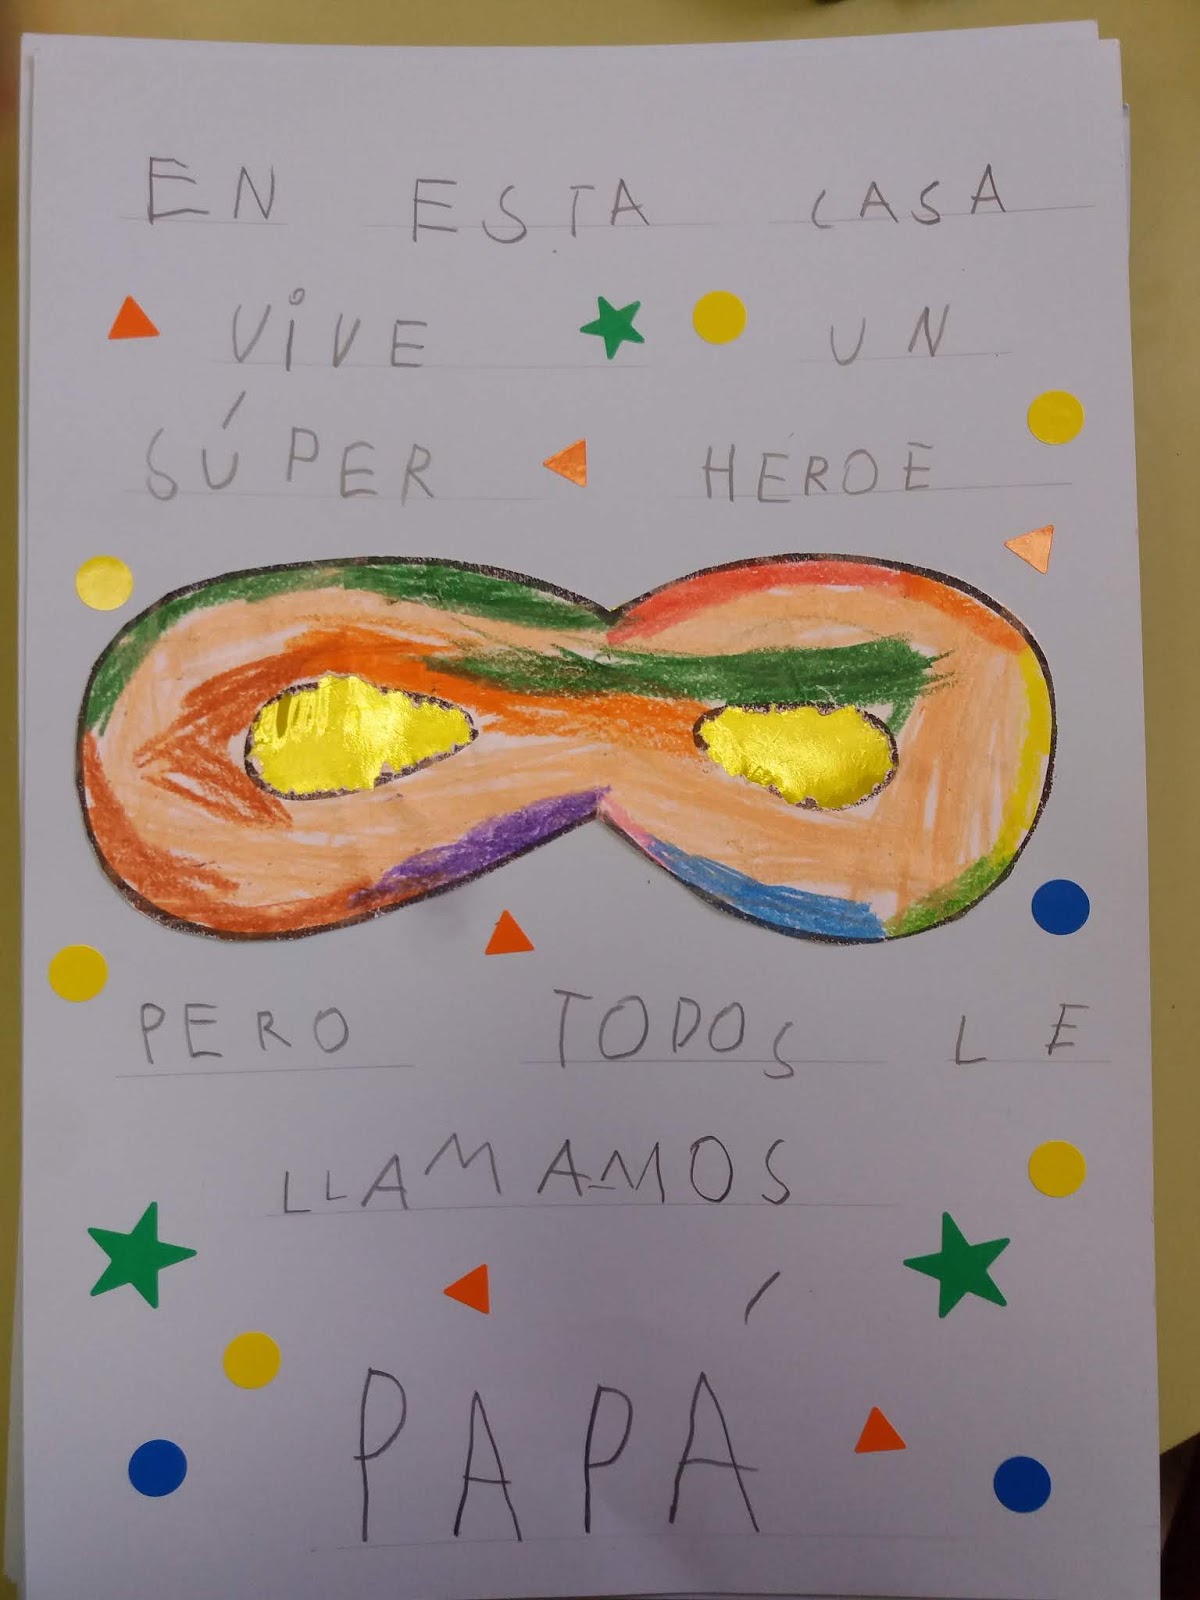 EN ESTA CASA
ViVE UN
SÚPER HÉROE
PERO TODOS LE
LLAMAMOS
PAPÁ